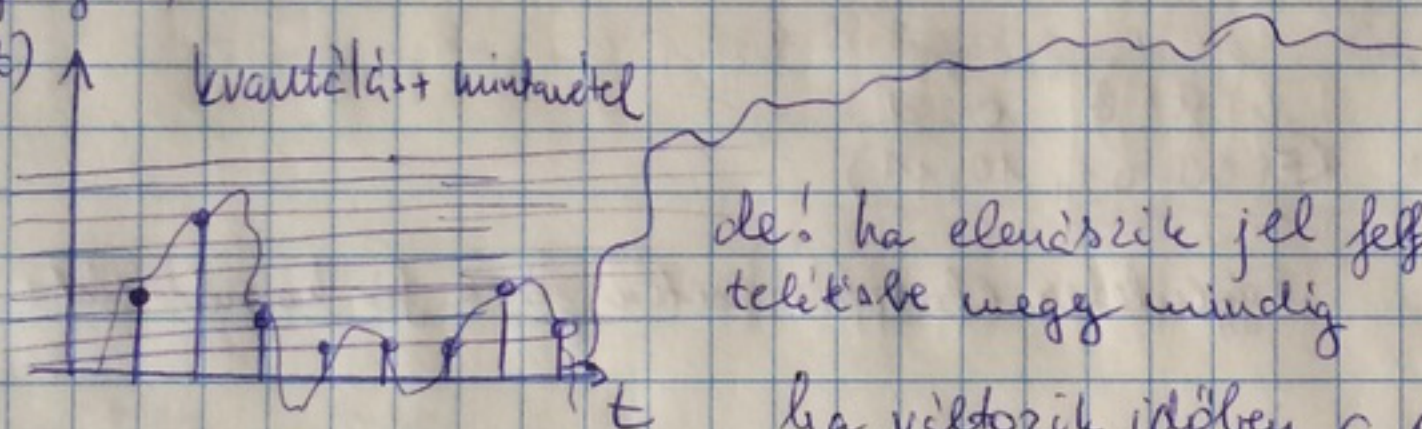 kvantálás + mintavétel
de! ha elmászik jel felf
telítésbe megy mindig
t
ha változik időben a